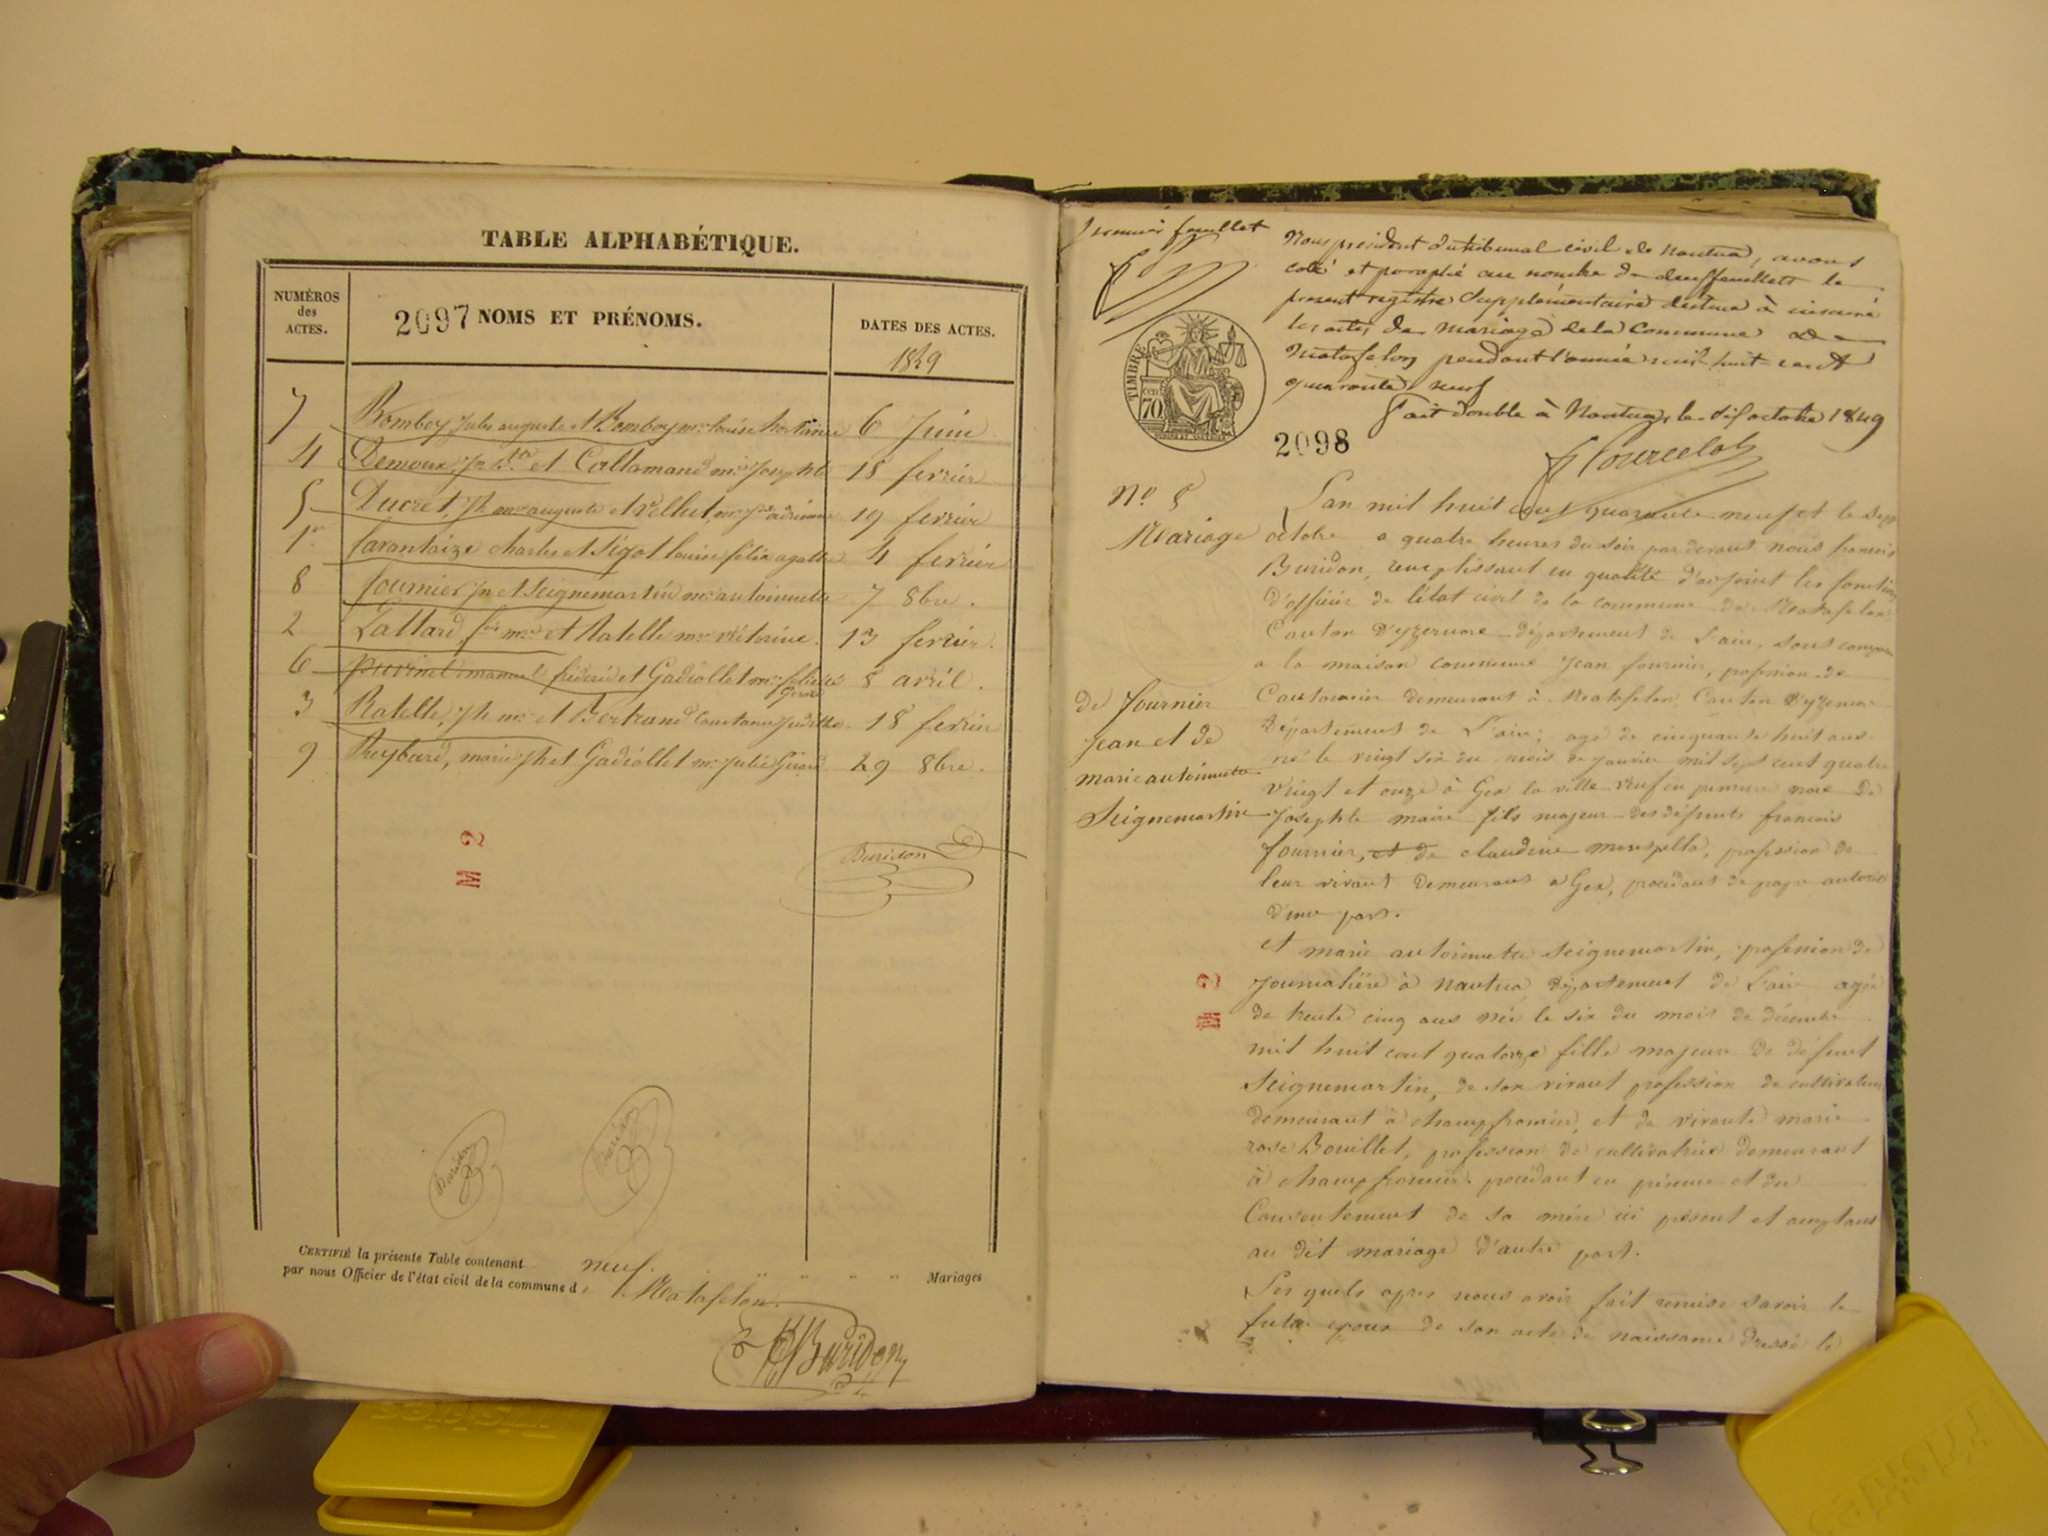 TABLE ALPHABÉTIQUE.
NUMÉROS des ACTES.
2097 NOMS ET PRÉNOMS.
DATES DES ACTES.
1849
7 Bomboy Jules auguste et Bomboy mie louise hortense 6 Juin
4 Demoux, Jn Bte et Callamand mie Josephte 18 fevrier
5 Ducret, Jh mie auguste et Vellut, mie 19 fevrier
1er Carantaize charles et Sigot louise félix agathe 4 fevrier
8 fournier Jn et Seignemartin mie antoinette 7 8bre.
2 Lallard, et Ratelle mie victorine. 13 fevrier.
6 manuel fréderic et Gadiollet mie felicité Gerard 8 avril.
3 Ratelle, Jh mie et Bertrand Constance Judith. 18 fevrier
9 Reybard, marie Jh et Gadiollet mie Julie Girard 29 8bre.
M 2
Buridon
Buridon
Buridon
CERTIFIÉ la présente Table contenant neuf. Mariages
par nous Officier de l'état civil de la commune d. Matafelon.
Buridon
premier feuillet
Nous président du tribunal civil de Nantua, avons
coté et paraphé au nombre de deux feuillets le
present registre Supplémentaire destiné à inscrire
les actes de mariage de la Commune De
Matafelon pendant l'année mil huit cent
quarante neuf
Fait double à Nantua, le dix octobre 1849
TIMBRE
70
2098
No 8
Mariage
de fournier
Jean et de
marie antoinette
Seignemartin
L'an mil huit cent quarante neuf et le sept
octobre a quatre heures du soir par devant nous francois
Buridon, remplissant en qualité d'adjoint les fonctions
d'officier de l'état civil de la commune de Matafelon
Canton D'yzernore département de L'ain, sont comparu
a la maison commune Jean fournier, profession de
Cantonnier demeurant à Matafelon, Canton D'yzernore
Département de L'ain; agé de cinquante huit ans
né le vingt six du mois de Janvier mil sept cent quatre
vingt et onze à Gex la ville veuf en premiere noce De
Josephte maire fils majeur des défunts francois
fournier, et de claudine profession de
leur vivant demeurans a Gex, procédant de propre autorité
d'une part.
et marie antoinette Seignemartin, profession de
Journalière à Nantua département de L'ain agée
de trente cinq ans née le six du mois de décembre
mil huit cent quatorze fille majeure de défunt
Seignemartin, de son vivant profession de cultivateur
demeurant à champfromier, et de vivante marie
rose Bouillet, profession de cultivatrice demeurant
à champfromier. procédant en présence et du
Consentement de sa mère ici présent et acceptant
au dit mariage d'autre part.
M 2
Les quels apres nous avoir fait remise savoir le
futur epoux de son acte de naissance dressé le